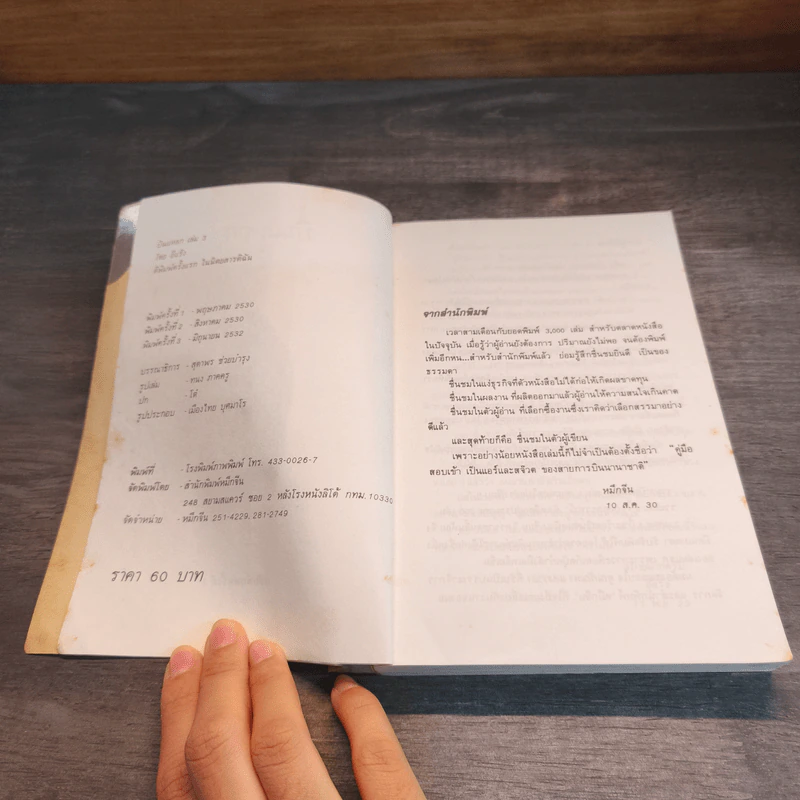 เล่ม 3
โดย
ตีพิมพ์ครั้งแรก ในนิตยสารดิฉัน
พิมพ์ครั้งที่ 1 - พฤษภาคม 2530
พิมพ์ครั้งที่ 2 - สิงหาคม 2530
พิมพ์ครั้งที่ 3 - มิถุนายน 2532
บรรณาธิการ - สุดาพร ช่วยบำรุง
รูปเล่ม - ทนง ภาคครู
ปก - โต๋
รูปประกอบ - เมืองไทย บุศมาโร
พิมพ์ที่ - โรงพิมพ์ภาพพิมพ์ โทร. 433-0026-7
จัดพิมพ์โดย - สำนักพิมพ์หมึกจีน
248 สยามสแควร์ ซอย 2 หลังโรงหนังลิโด้ กทม. 10330
จัดจำหน่าย - หมึกจีน 251-4229, 281-2749
ราคา 60 บาท
จากสำนักพิมพ์
เวลาสามเดือนกับยอดพิมพ์ 3,000 เล่ม สำหรับตลาดหนังสือ
ในปัจจุบัน เมื่อรู้ว่าผู้อ่านยังต้องการ ปริมาณยังไม่พอ จนต้องพิมพ์
เพิ่มอีกหน...สำหรับสำนักพิมพ์แล้ว ย่อมรู้สึกชื่นชมยินดี เป็นของ
ธรรมดา
ชื่นชมในแง่ธุรกิจที่ตัวหนังสือไม่ได้ก่อให้เกิดผลขาดทุน
ชื่นชมในผลงาน ที่ผลิตออกมาแล้วผู้อ่านให้ความสนใจเกินคาด
ชื่นชมในตัวผู้อ่าน ที่เลือกซื้องานซึ่งเราคิดว่าเลือกสรรมาอย่าง
ดีแล้ว
และสุดท้ายก็คือ ชื่นชมในตัวผู้เขียน
เพราะอย่างน้อยหนังสือเล่มนี้ก็ไม่จำเป็นต้องตั้งชื่อว่า "คู่มือ
สอบเข้า เป็นแอร์และสจ๊วต ของสายการบินนานาชาติ"
หมึกจีน
10 ส.ค. 30